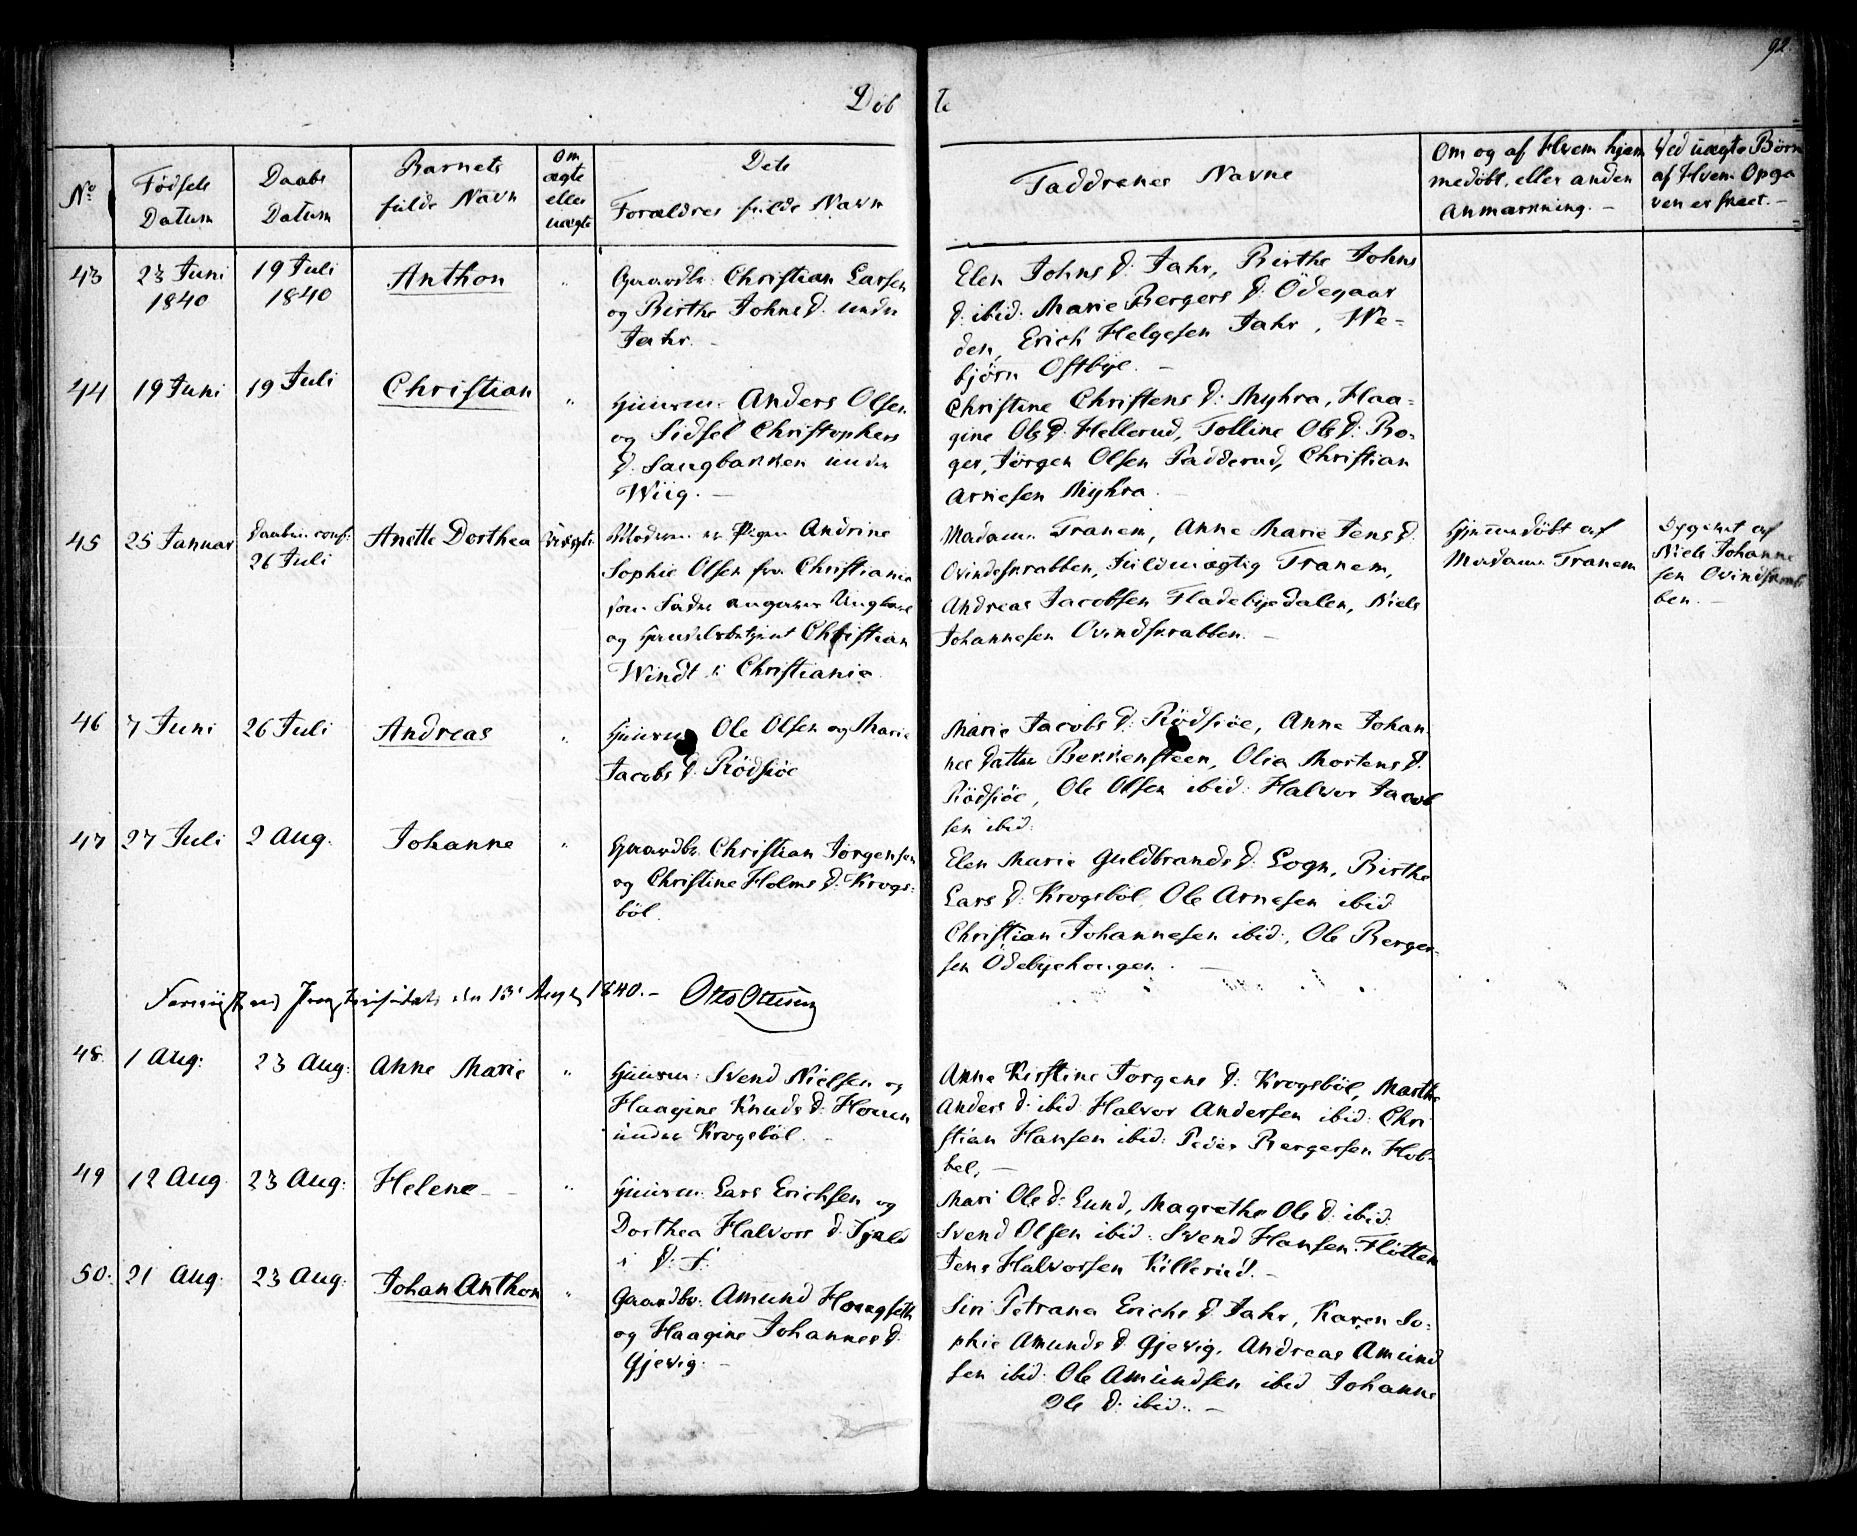 92.
Döb te
No
Fødsels Datum
Daabs Datum
Barnets fulde Navn
Om ægte eller uægte
Dets Forældres fulde Navn
Faddrenes Navne
Om og af Hvem hjemmedöbt, eller anden Anmærkning. -
Ved uægte Börn af Hvem Opgaven er skeet. -
43
23 Juni 1840
19 Juli 1840
Anthon
"
Gaardbr: Christian Larsen
og Birthe Johns D. under
Jahr. -
Elen Johns D: Jahr, Birthe Johns
D. ibid. Marie Bergers D: Ödegaar
den, Erich Helgesen Jahr, We-
björn Ostbye. -
44
19 Juni
19 Juli
Christian
"
Huusm: Anders Olsen
og Sidsel Christophers
D. Saugbakken under
Wiig. -
Christine Christens D: Myhra, Haa-
gine Ols D. Hellerud, Tolline Ols D: Bo-
ger, Jörgen Olsen Padderud, Christian
Arnesen Myhra. -
45
25 Januar
Daaben conf:
26 Juli
Anette Dorthea
Uægte
Moderen er Pigen Andrine
Sophie Olsen fra Christiania
som Fader angives Ungkarl
og Handelsbetjent Christian
Windt i Christiania
Madame Tranem, Anne Marie Jens D.
Ovindskrabben, Fuldmægtig Tranem,
Andreas Jacobsen Fladebyedalen, Niels
Johannesen Ovindskrabben. -
Hjemmedöbt af
Madame Tranem
Opgivet af
Niels Johanne
sen Ovindskrab
ben. -
46
7 Juni
26 Juli
Andreas
"
Huusm: Ole Olsen og Marie
Jacobs D. Rödsiöe
Marie Jacobs D: Rödsiöe, Anne Johan
nes Datter Bekkensteen, Olia Mortens D.
Rödsiöe, Ole Olsen ibid: Halvor Jacob
sen ibid.
47
27 Juli
2 Aug.
Johanne
"
Gaardbr. Christian Jörgensen
og Christine Holms D. Krogs-
böl.
Elen Marie Guldbrands D: Sogn, Birthe
Lars D. Krogsböl, Ole Arnesen ibid
Christian Johannesen ibid., Ole Berger-
sen Ödebyehougen. -
den 13 Aug 1840. - Otto Ottesen
48.
1 Aug:
23 Aug:
Anne Marie
"
Huusm: Svend Nielsen og
Haagine Knuds D: Houen
under Krogsböl. -
Anne Kirstine Jorgens D: Krogsböl, Marthe
Anders D: ibid: Halvor Andersen ibid: Chri
stian Hansen ibid: Peder Bergersen Hob-
bel, -
49
12 Aug.
23 Aug:
Helene -
"
Huusm: Lars Erichsen og
Dorthea Halvors D: Fjeld
i D: F.
Mari Ols D: Lund, Magrethe Ols D: ibid:
Svend Olsen ibid: Svend Hansen Flötten
Jens Halvorsen Killerud. -
50.
21 Aug:
23 Aug:
Johan Anthon
"
Gaardbr: Amund Hougseth
og Haagine Johannes D:
Gjevig. -
Siri Petrana Erichs D: Jahr, Karen So-
phie Amunds D. Gjevig, Andreas Amund
sen ibid: Ole Amundsen ibid Johanne
Ols D: ibid. -